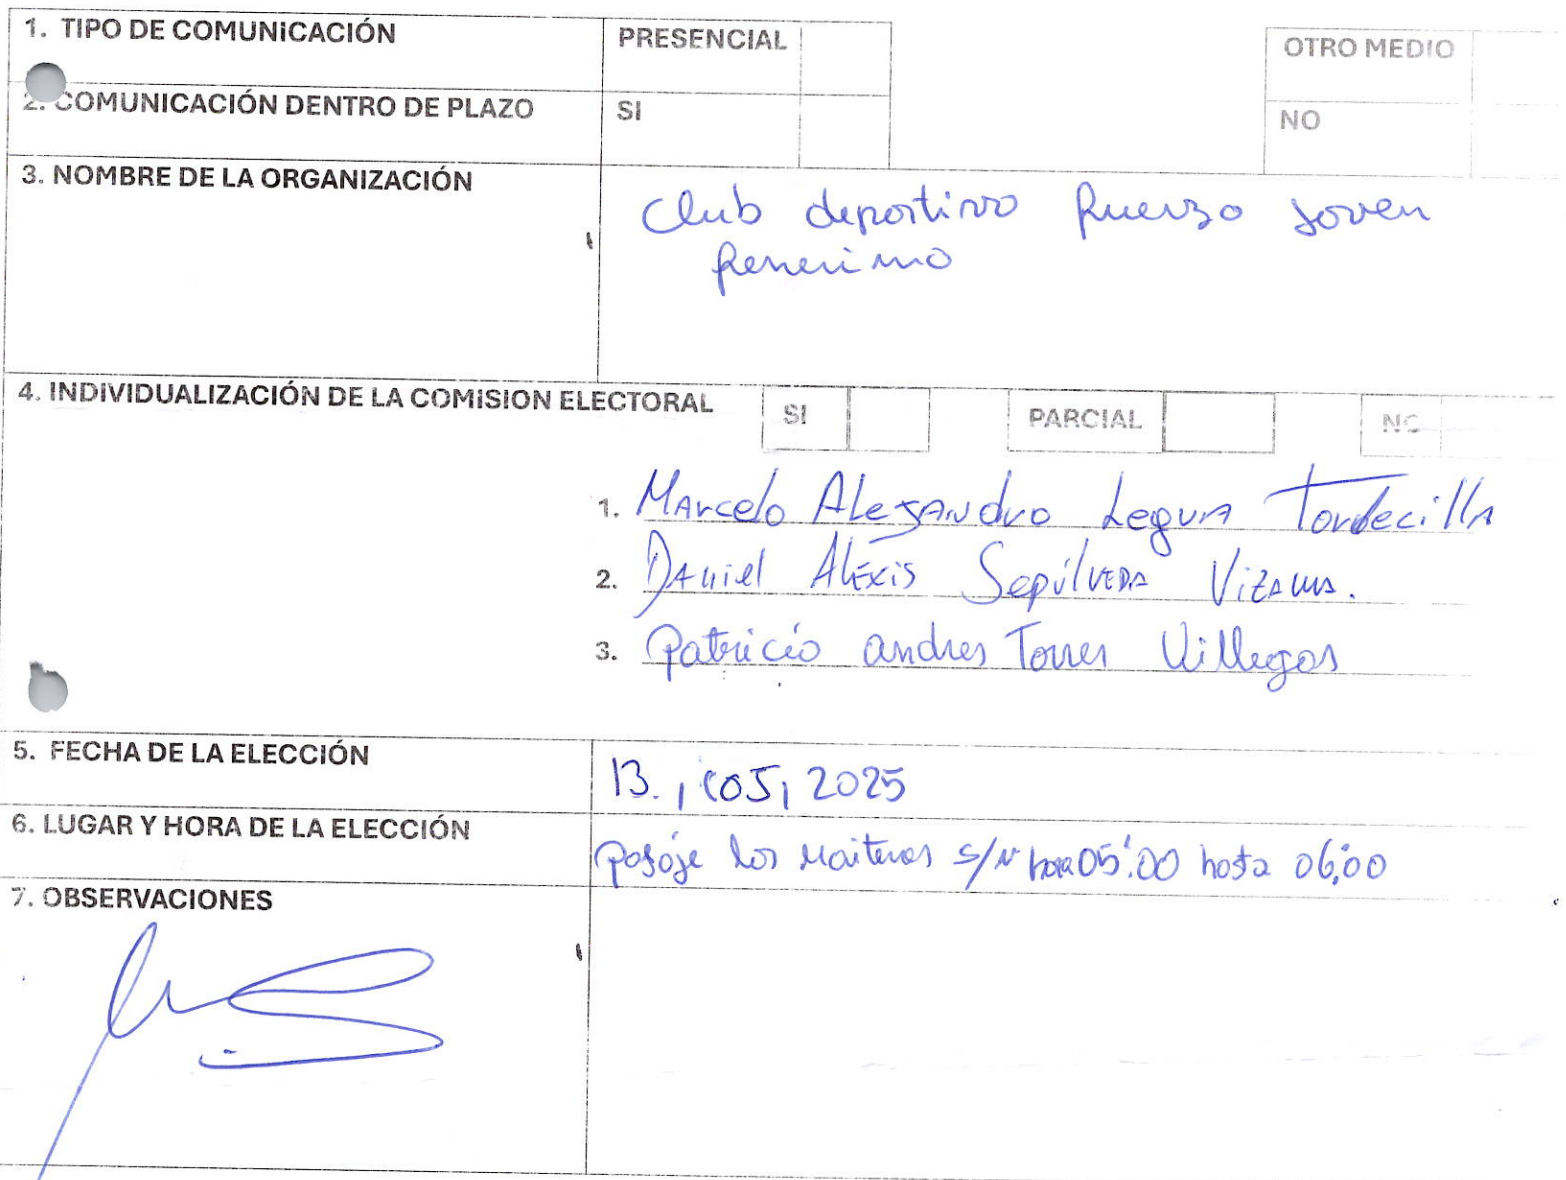 1. TIPO DE COMUNICACIÓN PRESENCIAL OTRO MEDIO
2. COMUNICACIÓN DENTRO DE PLAZO SI NO
3. NOMBRE DE LA ORGANIZACIÓN
Club deportivo fuerza Joven
femenino
4. INDIVIDUALIZACIÓN DE LA COMISION ELECTORAL SI PARCIAL NO
1. Marcelo Alejandro Legua Tordecilla
2. Daniel Alexis Sepúlveda Vizama.
3. Patricio andres Torres Villegas
5. FECHA DE LA ELECCIÓN
13. 05, 2025
6. LUGAR Y HORA DE LA ELECCIÓN
pasaje los Maitenes s/n hora 05:00 hasta 06:00
7. OBSERVACIONES